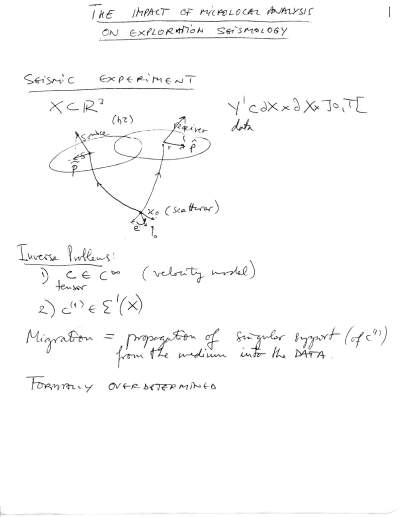 THE IMPACT OF MICROLOCAL ANALYSIS
ON EXPLORATION SEISMOLOGY
1
SEISMIC EXPERIMENT
X ⊂ R³
(n≥2)
Y' ⊂ ∂X × ∂X × ]0,T[
data
source
receiver
s
r
p̃
p̂
x₀ (scatterer)
Inverse Problems:
1) c ∈ C^∞ (velocity model)
tensor
2) c⁽¹⁾ ∈ Ɛ'(X)
Migration = propagation of singular support (of c⁽¹⁾)
from the medium into the DATA.
FORMALLY OVERDETERMINED